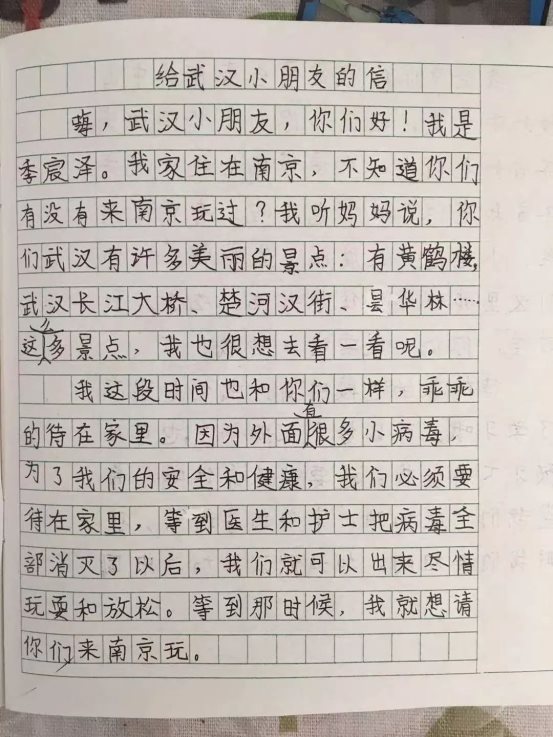 给武汉小朋友的信
嗨，武汉小朋友，你们好！我是
季宸泽。我家住在南京，不知道你们
有没有来南京玩过？我听妈妈说，你
们武汉有许多美丽的景点：有黄鹤楼，
武汉长江大桥、楚河汉街、昙华林……
这么多景点，我也很想去看一看呢。
我这段时间也和你们一样，乖乖
的待在家里。因为外面有很多小病毒，
为了我们的安全和健康，我们必须要
待在家里，等到医生和护士把病毒全
部消灭了以后，我们就可以出来尽情
玩耍和放松。等到那时候，我就想请
你们来南京玩。